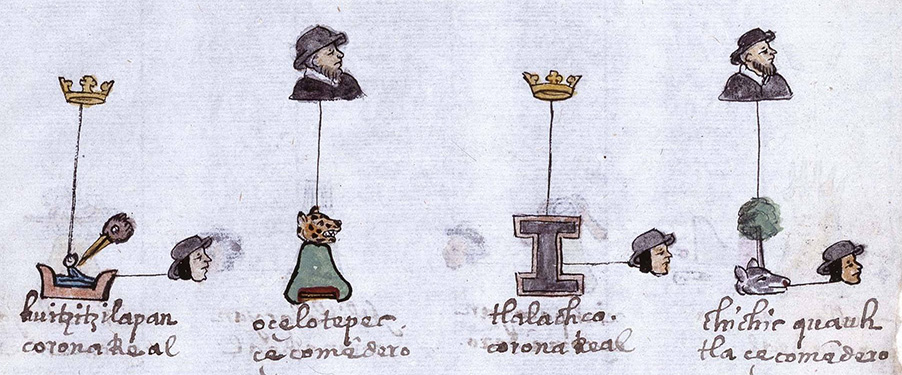 huitzitzilapan
corona Real
oçelotepec.
ẽcomẽdero
tlalachco.
corona Real
chichic quauh
tla ẽcomẽdero